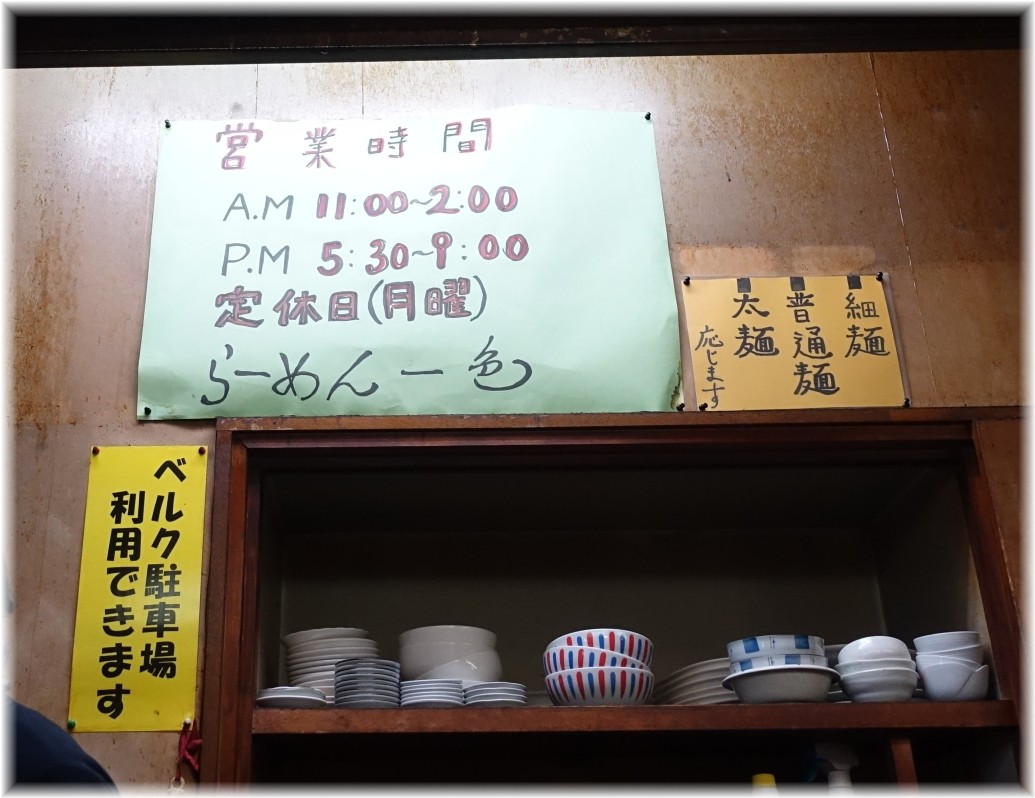 営業時間
A.M 11:00~2:00
P.M 5:30~9:00
定休日(月曜)
らーめん一色
細麺
普通麺
太麺
応じます
ベルク駐車場
利用できます